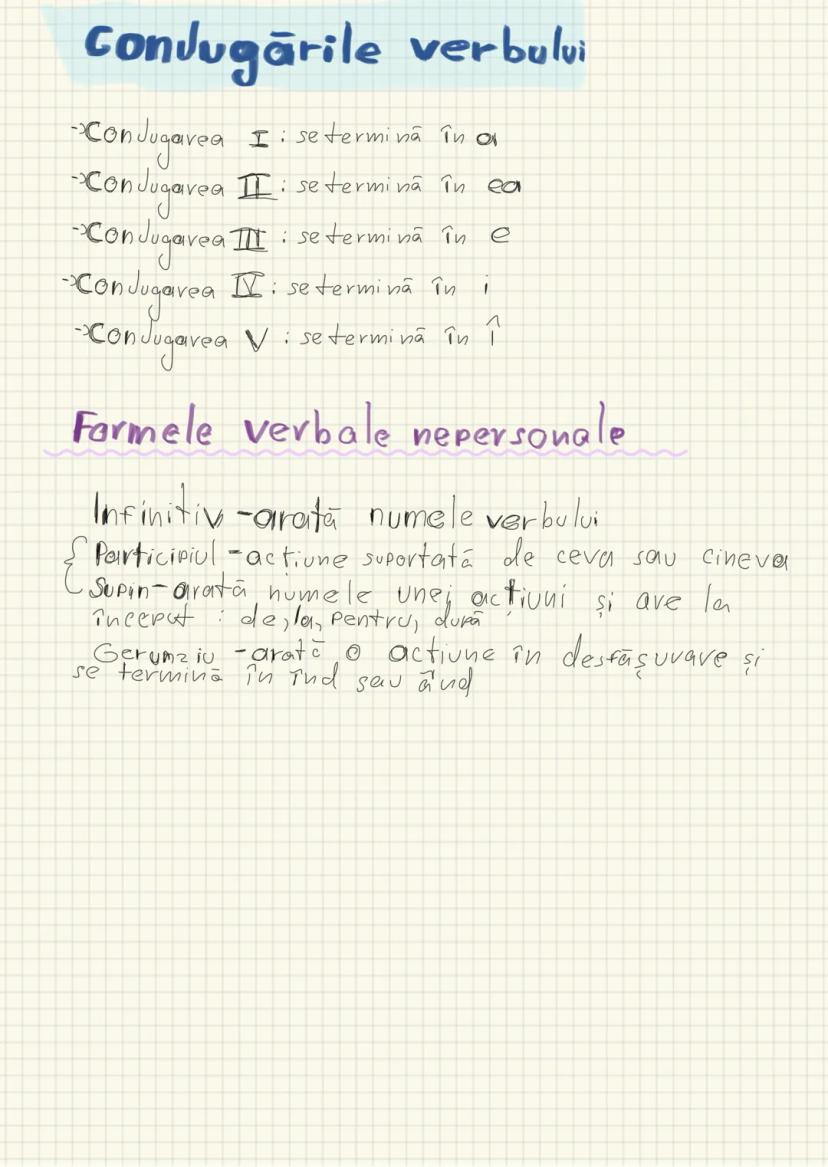 Conjugările verbului
→Conjugarea I : se termină în a
→Conjugarea II : se termină în ea
→Conjugarea III : se termină în e
→Conjugarea IV : se termină în i
→Conjugarea V : se termină în î
Formele verbale nepersonale
Infinitiv -arată numele verbului
Participiul -actiune suportată de ceva sau cineva
Supin- arată numele unei acțiuni și are la
început : de, la, pentru, după
Gerunziu -arată o actiune în desfășurare și
se termină în înd sau ând